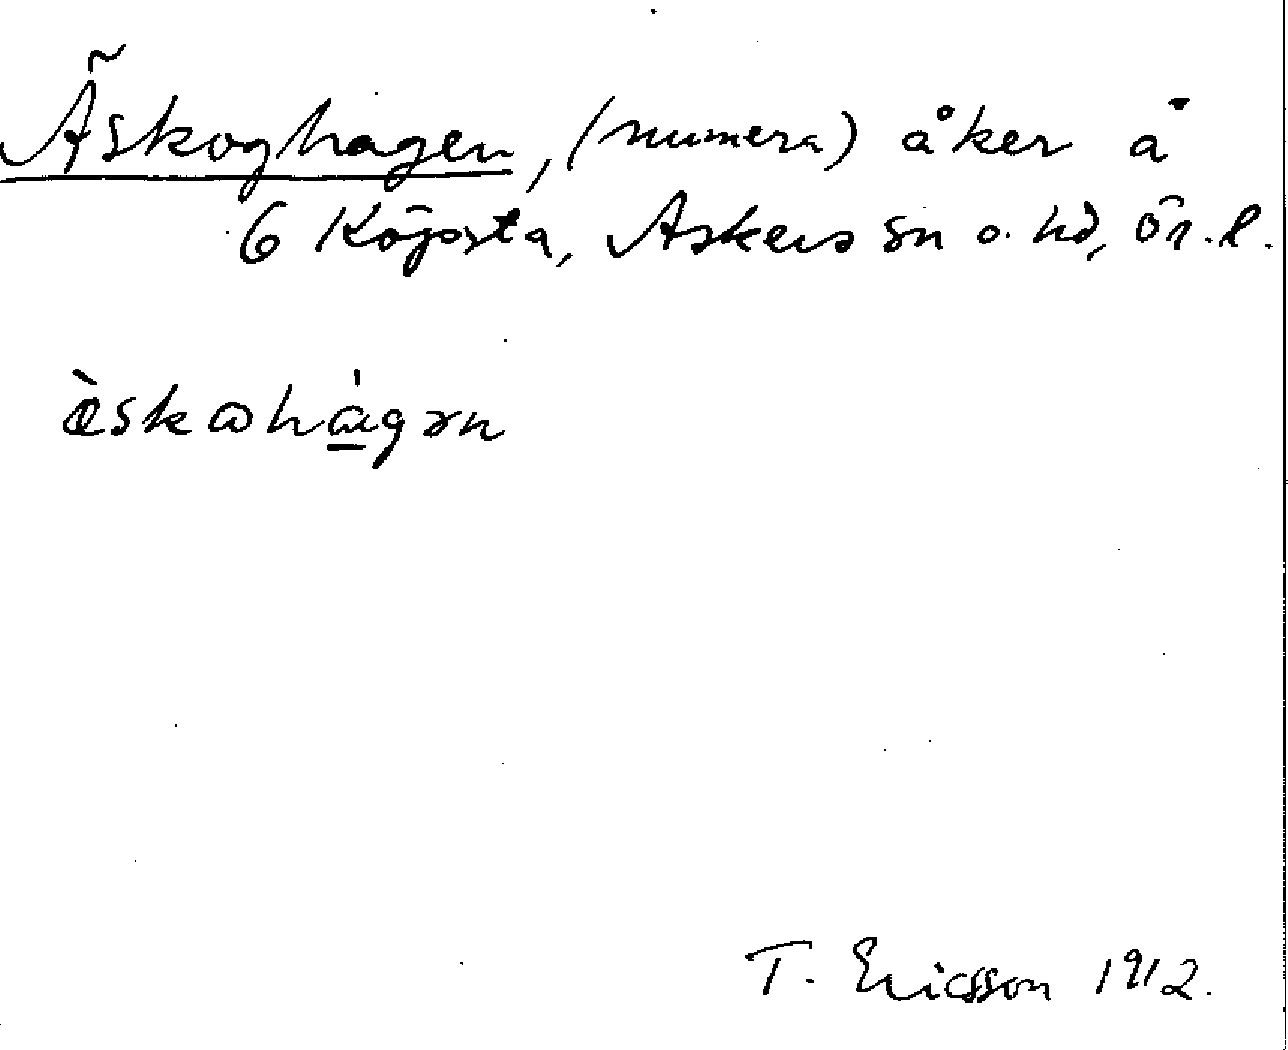 Äskoghagen, (numera) åker å
6 Köpsta, Askers sn o. hd, Ör. l.
àskωhàgən
T. Ericsson 1912.